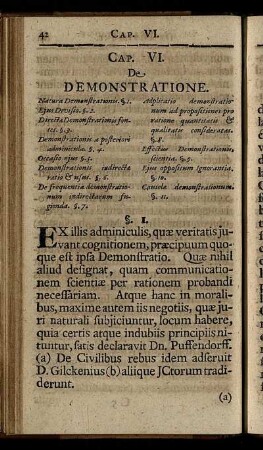 42 CAP. VI.
CAP. VI.
De
DEMONSTRATIONE.
Natura Demonstrationis. §. 1.
Ejus Divisio. §. 2.
Directa Demonstrationis fon-
tes. §. 3.
Demonstrationis a posteriori
adminicula. §. 4.
Occasio ejus §. 5.
Demonstrationis indirecta
ratio & usus. §. 6.
De frequentia demonstratio-
num indirectarum fu-
gienda. §. 7.
Adplicatio demonstratio-
num ad propositiones pro
ratione quantitatis &
qualitatis consideratas.
§. 8.
Effectus Demonstrationis,
scientia. §. 9.
Ejus oppositum ignorantia.
§. 10.
Cautela demonstrationum.
§. 11.
§. 1.
EX illis adminiculis, quæ veritatis ju-
vant cognitionem, præcipuum quo-
que est ipsa Demonstratio. Quæ nihil
aliud designat, quam communicatio-
nem scientiæ per rationem probandi
necessariam. Atque hanc in morali-
bus, maxime autem iis negotiis, quæ ju-
ri naturali subjiciuntur, locum habere,
quia certis atque indubiis principiis ni-
tuntur, satis declaravit Dn. Puffendorff.
(a) De Civilibus rebus idem adseruit
D. Gilckenius (b) aliique JCtorum tradi-
derunt.
(a)